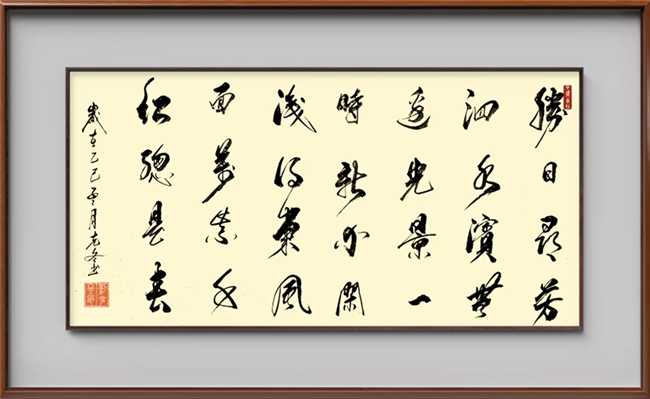 勝日尋芳
泗水濱無
邊光景一
時新等閑
識得東風
面萬紫千
紅總是春
歲在乙巳月